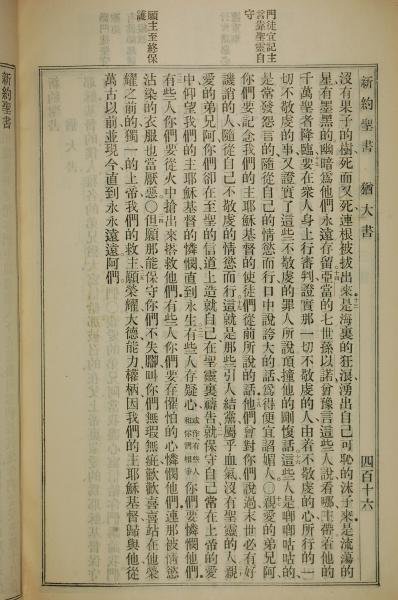 新約聖書　猶大書　四百十六
門徒宜記主
言靠聖靈自
守
願主至終保
護
沒有果子的樹死而又死連根被拔出來是海裏的狂浪湧出自己可恥的沫子來是流蕩的
星有墨黑的幽暗爲他們永遠存留亞當的七世孫以諾曾豫言這些人說看哪主帶着他的
千萬聖者降臨要在衆人身上行審判證實那一切不敬虔的人由着不敬虔的心所行的一
切不敬虔的事又證實了這些不敬虔的罪人所說頂撞他的剛愎話這些人是唧唧咕咕的
是常發怨言的隨從自己的情慾而行口中說誇大的話爲得便宜諂媚人○親愛的弟兄阿
你們要記念我們的主耶穌基督的使徒們從前所說的話他們會對你們說過末世必有好
譏誚的人隨從自己不敬虔的情慾而行這就是那些引人結黨屬乎血氣沒有聖靈的人親
愛的弟兄阿你們卻在至聖的信道上造就自己在聖靈裏禱告就保守自己常在上帝的愛
中仰望我們的主耶穌基督的憐憫直到永生有些人存疑心或作有些人和你們相爭你們要憐憫他們
有些人你們要從火中搶出來搭救他們有些人你們要存懼怕的心憐憫他們連那被情慾
沾染的衣服也當厭惡○但願那能保守你們不失腳叫你們無瑕無疵歡歡喜喜站在他榮
耀之前的獨一的上帝我們的救主願榮耀大德能力權柄因我們的主耶穌基督歸與他從
萬古以前並現今直到永永遠遠阿們
新約聖書